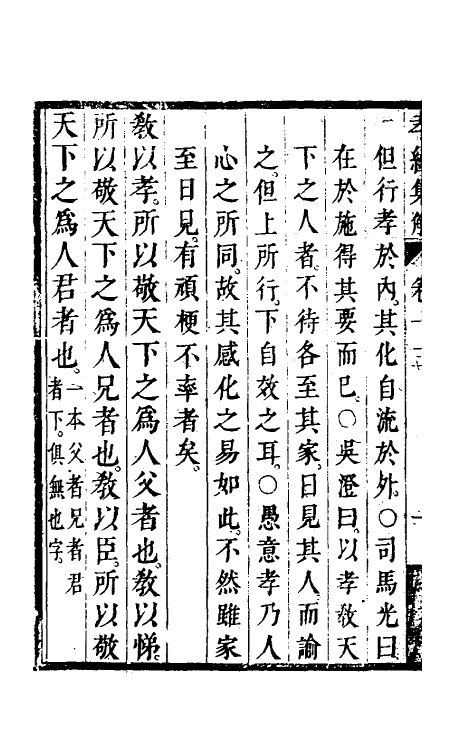 孝經集解 卷
但行孝於內。其化自流於外。○司馬光曰
在於施得其要而已。○吳澄曰。以孝敎天
下之人者。不待各至其家。日見其人而諭
之。但上所行。下自效之耳。○愚意孝乃人
心之所同。故其感化之易如此。不然雖家
至日見。有頑梗不率者矣。
敎以孝。所以敬天下之爲人父者也。敎以悌。
所以敬天下之爲人兄者也。敎以臣。所以敬
天下之爲人君者也。一本父者兄者君者下。俱無也字。